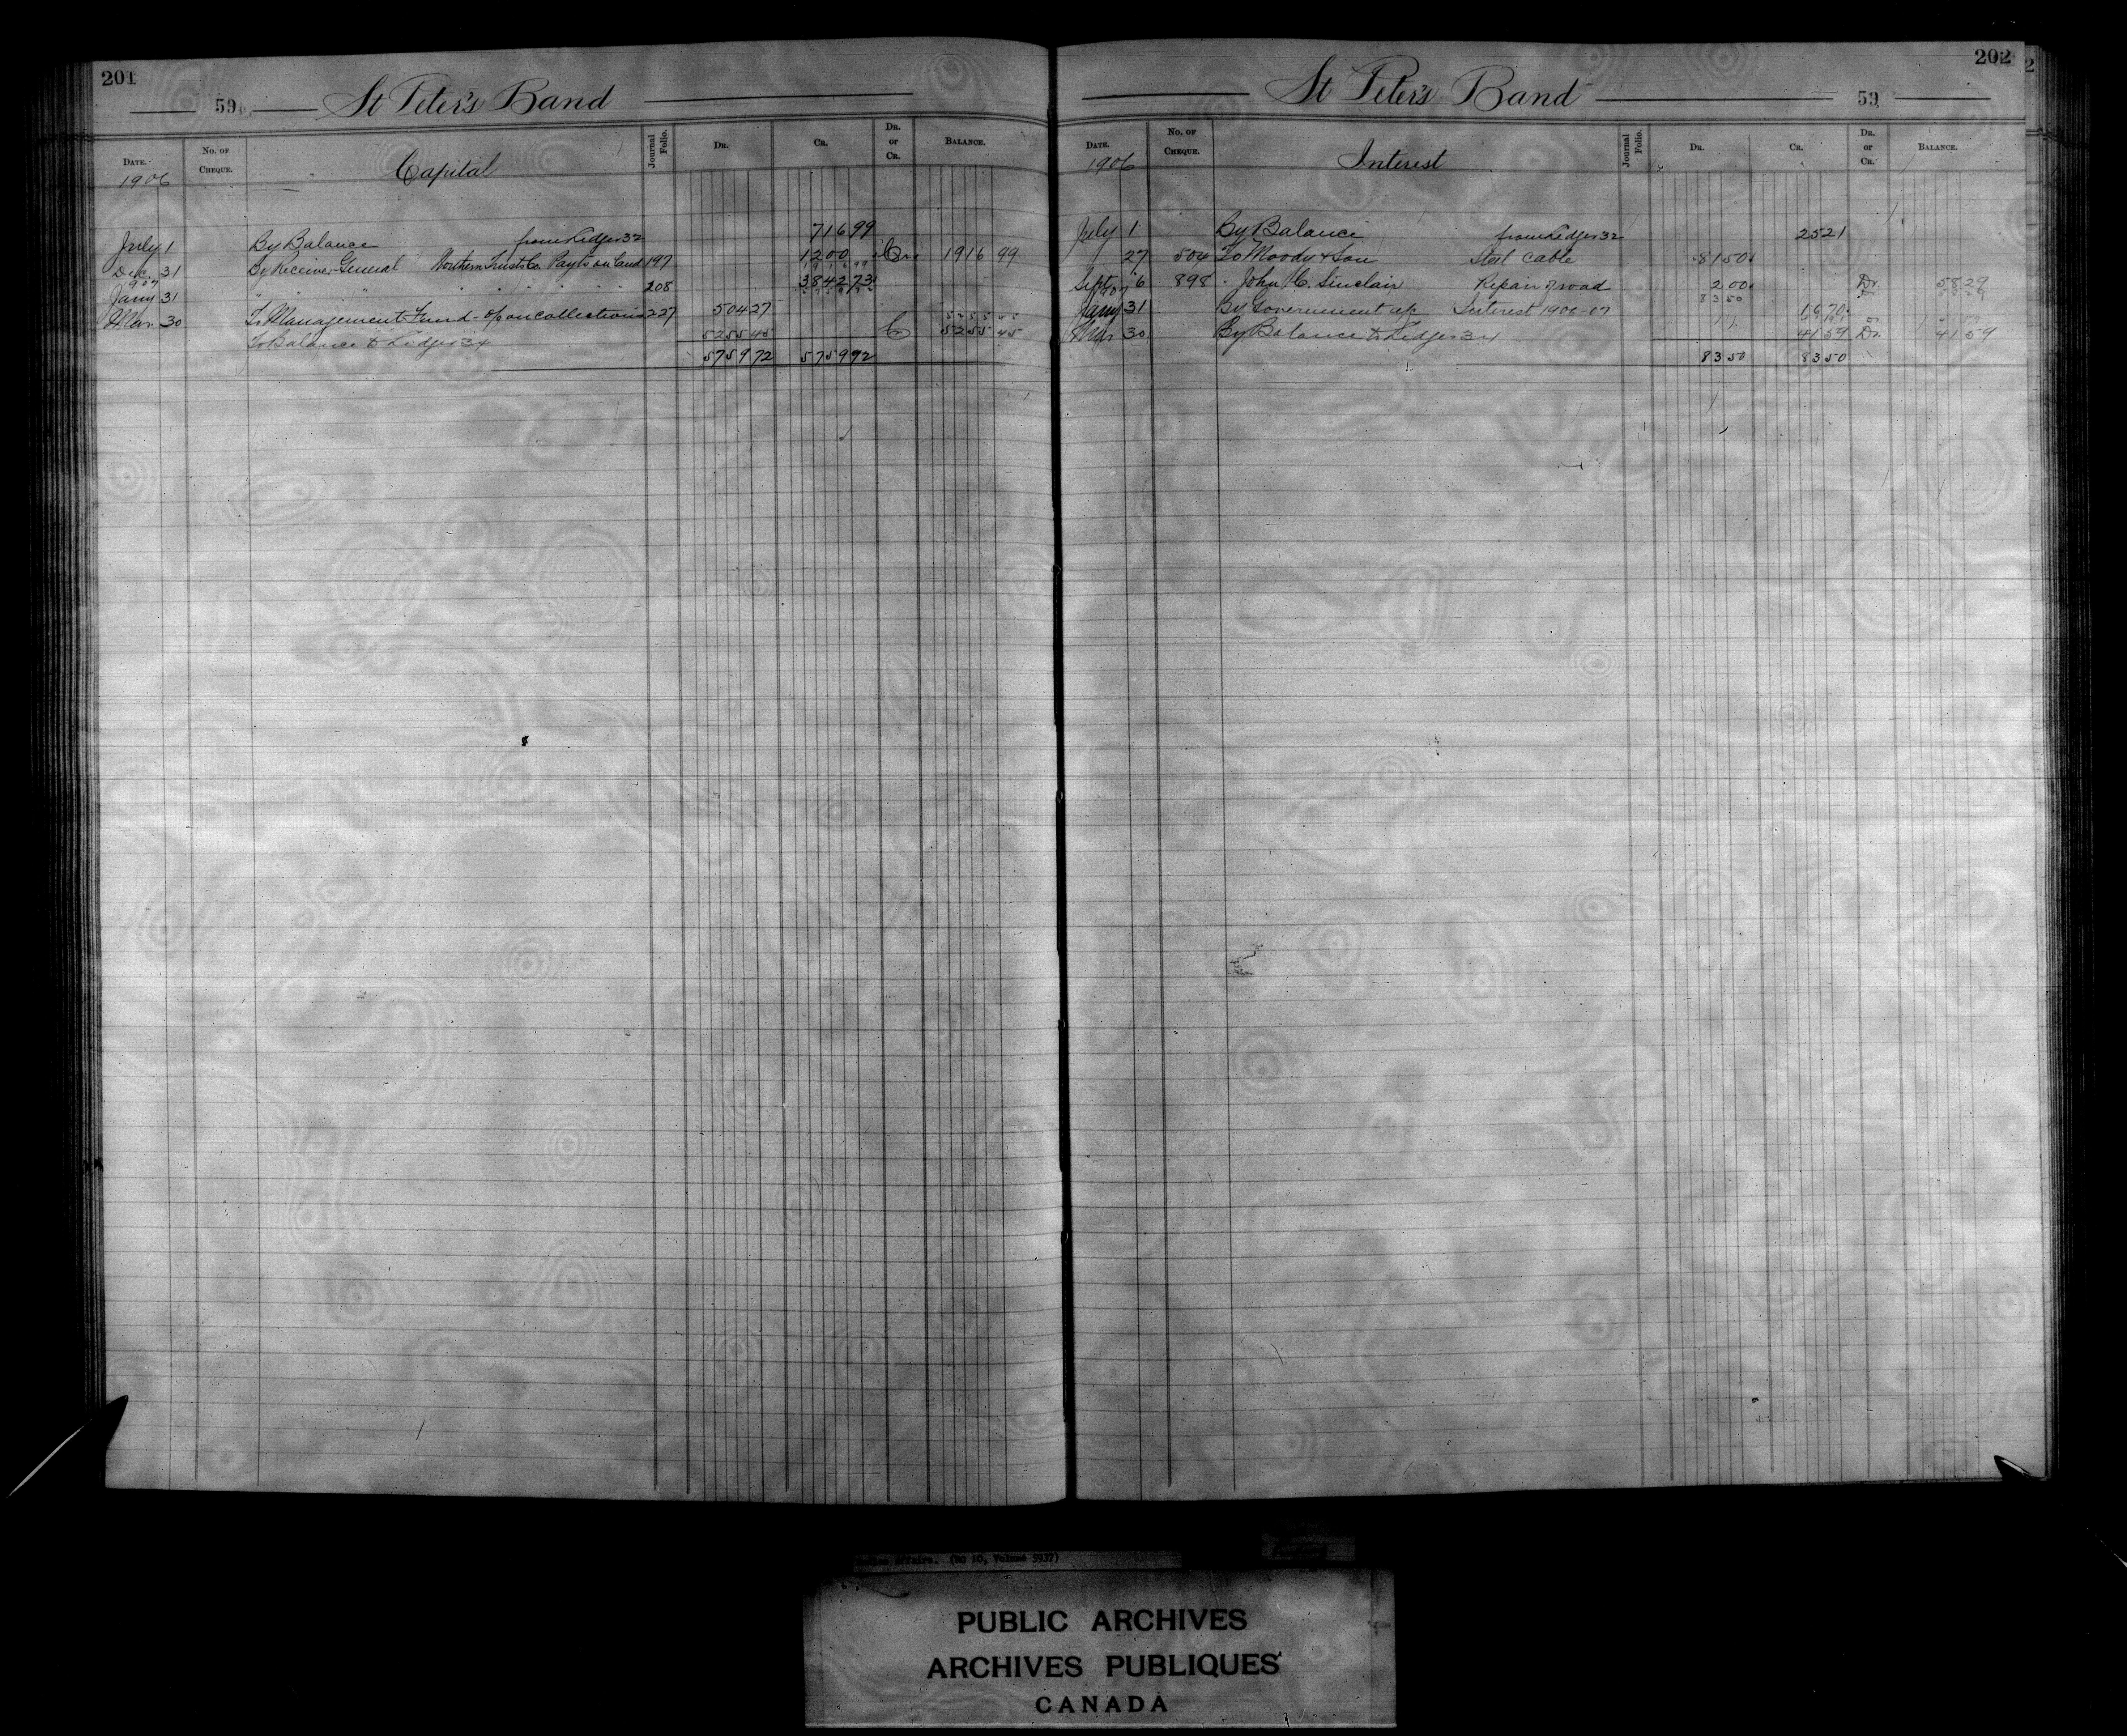 201
59 St Peter's Band
DATE. No. OF CHEQUE. Capital Journal Folio. DR. CR. DR. or CR. BALANCE.
1906
July 1 By Balance from Ledger 32 716 99
Dec. 31 By Receiver General Northern Trusts Co. Payts on Land 197 1200 Cr. 1916 99
1907
Jany 31 " " " " " " " " 208 3842 73
Mar 30 To Management Fund - on collections 227 504 27
To Balance to Ledger 34 5255 45 Cr 5255 45
5759 72 5759 72
202
St Peter's Band 59
DATE. No. OF CHEQUE. Interest Journal Folio. DR. CR. DR. or CR. BALANCE.
1906
July 1 By Balance from Ledger 32 25 21
27 504 To Moody & Son Steel Cable 81 50
Sept. 6 898 " John C. Sinclair Repair of road 2 00 Dr. 58 29
1907 83 50
Jany 31 By Government a/c Interest 1906-07 16 70
Mar 30 By Balance to Ledger 34 41 59 Dr. 41 59
83 50 83 50
Affairs. (RG 10, Volume 5937)
PUBLIC ARCHIVES
ARCHIVES PUBLIQUES
CANADA